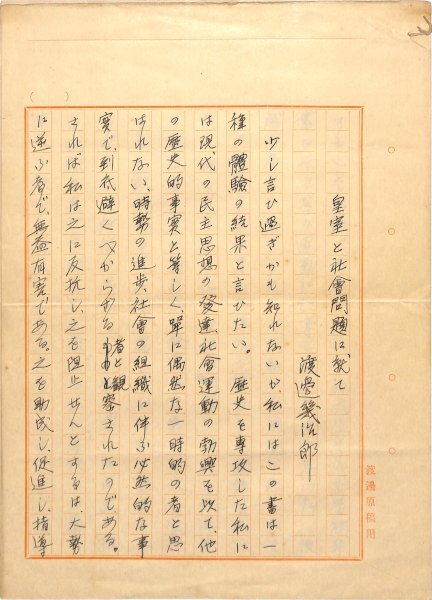 皇室と社會問題に就て
渡邊幾治郎
少し言ひ過ぎかも知れないが私にはこの書は一
種の體驗の結果と言ひたい。歴史を專攻した私に
は現代の民主思想の發達、社會運動の勃興を以て、他
の歴史的事實と等しく、單に偶然な一時的の者と思
はれない、時勢の進歩、社會の組織に伴ふ必然的な事
實で、到底避くべからざる者と觀察されたのである。
されば私は之に反抗し、之を阻止せんとするは、大勢
に逆ふ者で、無益有害である。之を助成し、促進し、指導
渡邊原稿用